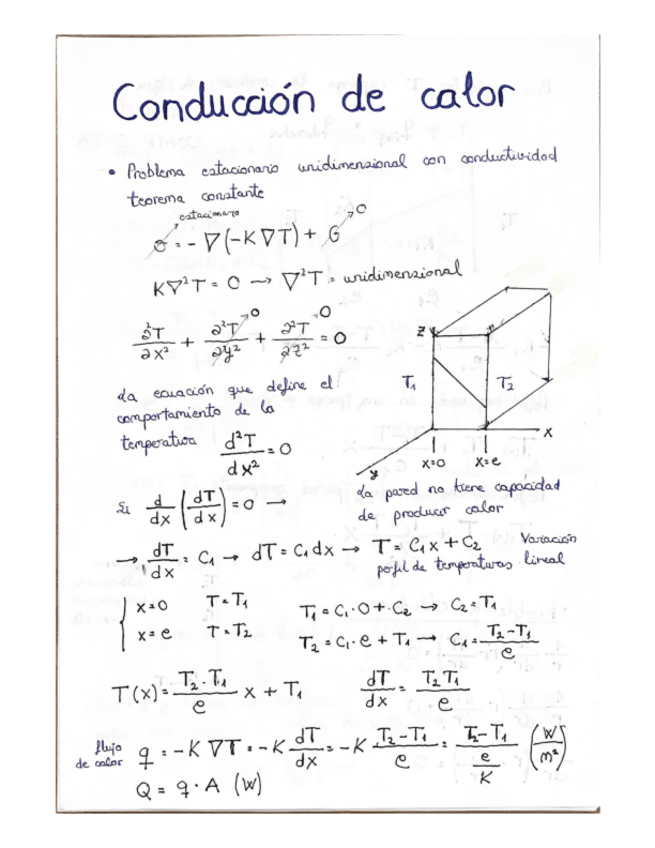 Conducción de calor
• Problema estacionario unidimensional con conductividad
teorema constante
estacionario
0 = -∇(-K∇T) + G → 0
K∇²T = 0 → ∇²T = unidimensional
∂²T/∂x² + ∂²T/∂y² → 0 + ∂²T/∂z² → 0 = 0
La ecuación que define el
comportamiento de la
temperatura d²T/dx² = 0
z
T₁ T₂
x
x=0 x=e
y
La pared no tiene capacidad
de producir calor
Si d/dx (dT/dx) = 0 →
→ dT/dx = C₁ → dT = C₁dx → T = C₁x + C₂ Variación
perfil de temperaturas lineal
x=0 T=T₁ T₁ = C₁·0 + C₂ → C₂ = T₁
x=e T=T₂ T₂ = C₁·e + T₁ → C₁ = T₂-T₁/e
T(x) = T₂-T₁/e x + T₁ dT/dx = T₂ T₁/e
flujo
de calor q = -K ∇T = -K dT/dx = -K T₂-T₁/e = T₂-T₁/(e/K) (W/m²)
Q = q·A (W)